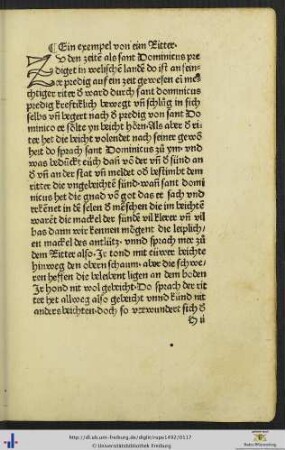 ¶ Ein exempel von eim Ritter.
Zu den zeitē als sant Dominicus pre
diget in welischē landē do ist an sein⸗
er predig auf ein zeit gewesen ei me⸗
chtiger riter ď ward durch sant dominicus
predig krefticklich bewegt vñ schlůg in sich
selbs vñ begert nach ď predig von sant Do
minico er sőlte yn beicht hőrn. Als aber ď ri⸗
ter het die beicht volendet nach seiner gewō
heit do sprach sant Dominicus zů ym. vnd
was bedűckt eűch dañ võ der vñ ď sűnd an
ď vñ an der stat vñ meldet od bestimbt dem
ritter die vngebeichtē sűnd. wañ sant domi
nicus het die gnad võ got das er sach vnd
erkēnet in dē selen ď mēschen die im beichtē
warēt die mackel der sűnde vil klerer vñ vil
bas dann wir kennen mőgent die leiplich/
en mackel des antlűtz. vnnd sprach mer zů
dem Ritter also. Je tond mit eűwer beichte
hinweg den obern schaum. aber die schwe⸗
ren heffen die beleibent ligen an dem boden
Je hond nit wol gebeicht. Do sprach der rit
ter het allweg also gebeicht vnnd kűnd nit
anders beichten. doch so verwundert sich ď
http://dl.ub.uni-freiburg.de/diglit/rupe1492/0117
© Universitätsbibliothek Freiburg